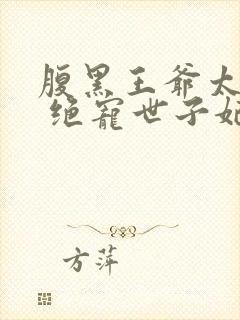 腹黑王爷太
绝宠世子妃
方萍